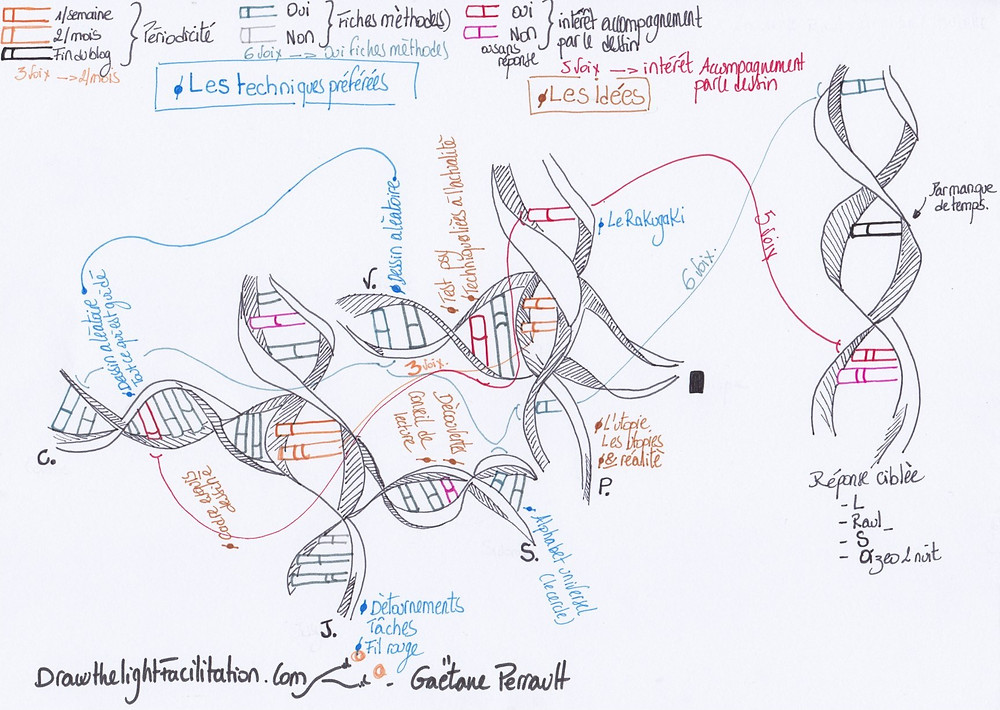 1/semaine
2/mois
Fin du blog
Périodicité
3 voix -> 2/mois
Oui
Non
Fiches mèthodes)
6 voix --> oui fiches mèthodes
Oui
Non
ou sans
réponse
intérêt accompagnement
par le dessin
5 voix -> intérêt Accompagnement
par le dessin
Les techniques préférées
Les Idées
Par manque
de temps.
Le Rakugaki
5 voix
6 voix.
Dessin alèatoire
Test psy
Techniques liées à l'actualité
V.
Dessin alèatoire
Tout ce qui est guidé
3 voix.
Conseil de
lecture
Découvertes
C.
L'utopie
Les Utopies
& réalité
P.
Réponse ciblèe
- L
- Raul_
- S
S.
Alphabet universel
(le cercle)
J.
Dètournements
Tâches
Fil rouge
Drawthelightfacilitation.com
- Gaëtane Perrault